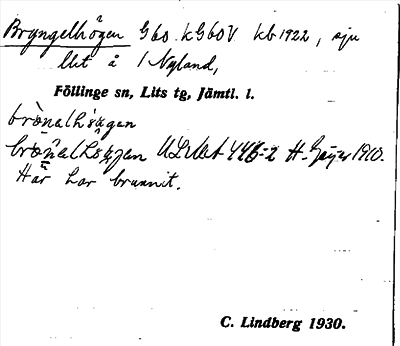 Bryngelhögen G60 kG60V kb 1922, sju
llet å 1 Nyland,
Föllinge sn, Lits tg, Jämtl. l.
brònalhö̀gen
brònalhö̀gen ULMA 446:2 H. Geijer 1910.
Här har brunnit.
C. Lindberg 1930.